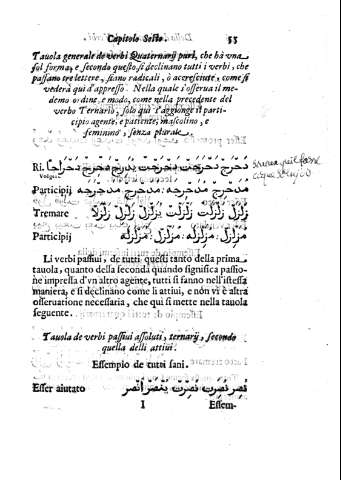 Capitolo Sesto. 53
Tauola generale de verbi Quaternarij puri, che hà vna
sol forma, e secondo questo si declinano tutti i verbi, che
passano tre lettere, siano radicali, ò accresciute, come si
vederà qui d'appresso. Nella quale s'osserua il me-
demo ordine, e modo, come nella precedente del
verbo Ternario, solo qui s'aggionge il parti-
cipio agente, e patiente, mascolino, e
feminino, senza plurale.
Ri.
Participij مُدَحْرِج مُدَحْرِجه مُدَحْرَج مُدَحْرَجه
Tremare زَلْزَل زَلْزَلَت زَلْزَلْت يُزَلْزِل زَلْزِل
Participij مُزَلْزِل مُزَلْزِله مُزَلْزَل مُزَلْزَله
Li verbi passiui, de tutti questi tanto della prima
tauola, quanto della seconda quando significa passio-
ne impressa d'vn altro agente, tutti si fanno nell'istessa
maniera, e si declinano come li attiui, e non vi è altra
osseruatione necessaria, che qui si mette nella tauola
seguente.
Tauola de verbi passiui assoluti, ternarij, secondo
quella delli attiui.
Essempio de tutti sani.
Esser aiutato نُصِر نُصِرَت نُصِرْت يُنْصَر اُنْصُر
I Essem-